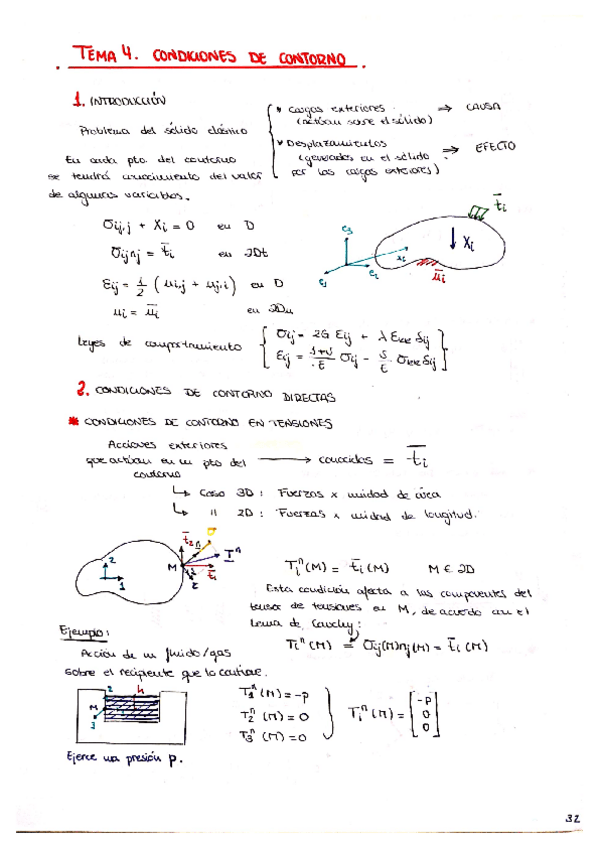 TEMA 4. CONDICIONES DE CONTORNO.
1. INTRODUCCIÓN
Problema del sólido elástico
* Cargas exteriores ⇒ CAUSA
(actúan sobre el sólido)
* Desplazamientos ⇒ EFECTO
(generados en el sólido
por las cargas exteriores)
En cada pto. del contorno
se tendrá conocimiento del valor
de algunas variables.
σij,j + Xi = 0 en D
σij nj = t̄i en ∂Dt
εij = 1/2 (ui,j + uj,i) en D
ui = ūi en ∂Du
e3
e2
e1
xi
Xi
t̄i
ūi
Leyes de comportamiento
σij = 2G εij + λ εkk δij
εij = (1+ν)/E σij - ν/E σkk δij
2. CONDICIONES DE CONTORNO DIRECTAS
* CONDICIONES DE CONTORNO EN TENSIONES
Acciones exteriores
que actúan en un pto del
contorno → conocidos = t̄i
↳ Caso 3D: Fuerzas x unidad de área
↳ " 2D: Fuerzas x unidad de longitud.
2
1
M
t̄2
n
σ
Tⁿ
t̄1
τ
Tiⁿ(M) = t̄i(M) M ∈ ∂D
Esta condición afecta a las componentes del
tensor de tensiones en M, de acuerdo con el
Lema de Cauchy:
Tiⁿ(M) = σij(M)nj(M) = t̄i(M)
Ejemplo:
Acción de un fluido/gas
sobre el recipiente que lo contiene.
2
h
M
1
3
T1ⁿ(M) = -p
T2ⁿ(M) = 0
T3ⁿ(M) = 0
Tiⁿ(M) = [-p 0 0]
Ejerce una presión p.
32